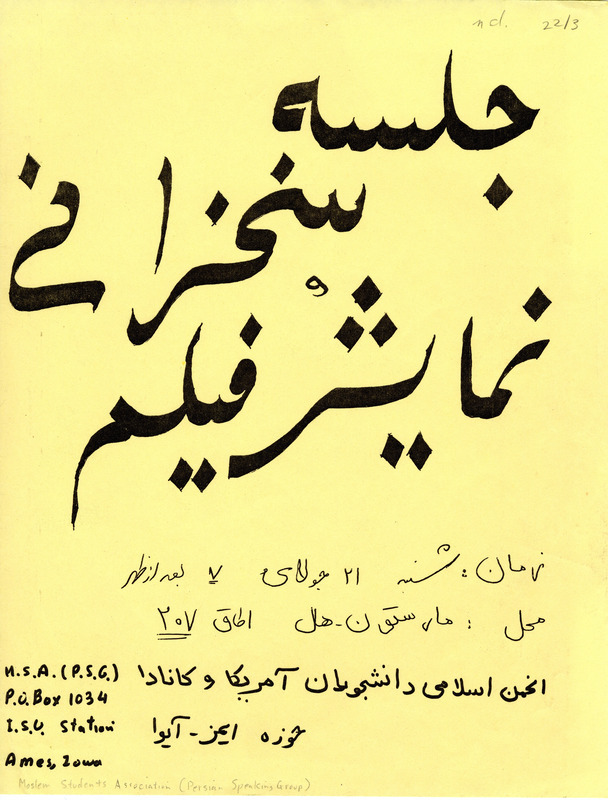 n.d. 22/3
جلسه
سخنرانی
و
نمایش فیلم
زمان: شنبه ۲۱ جولای ۷ بعد از ظهر
محل: مارستون-هال اطاق ۲۰۷
انجمن اسلامی دانشجویان آمریکا و کانادا
حوزه ایمز-آیوا
M.S.A. (P.S.G.)
P.O.Box 1034
I.S.U. Station
Ames, Iowa
Moslem Students Association (Persian Speaking Group)